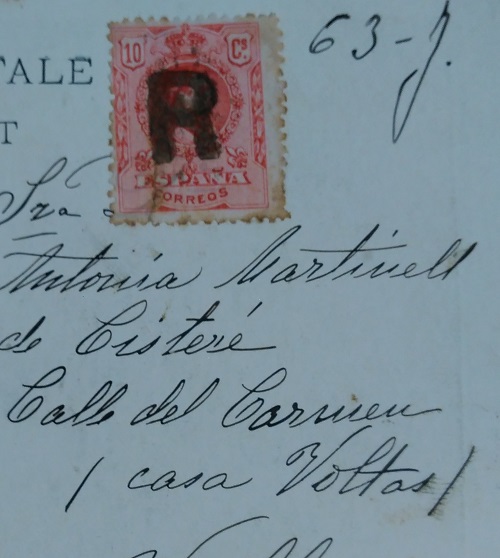 63-J.
TALE
T
10 Cs
R
ESPAÑA
CORREOS
Sra
Antonia Martinell
de Cisteré
Calle del Carmen
(casa Voltas)